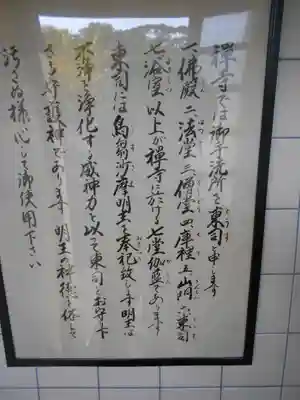 禅寺では御手洗所を東司と申します
一、佛殿 二、法堂 三、僧堂 四、庫裡 五、山門 六、東司
七、浴室 以上が禅寺に於ける七堂伽藍であります
東司には烏芻沙摩明王を奉祀致します 明王は
不浄を浄化する威神力を以って東司をお守り下
さる守護神であります 明王の神徳を体して
汚さぬ様心して御使用下さい